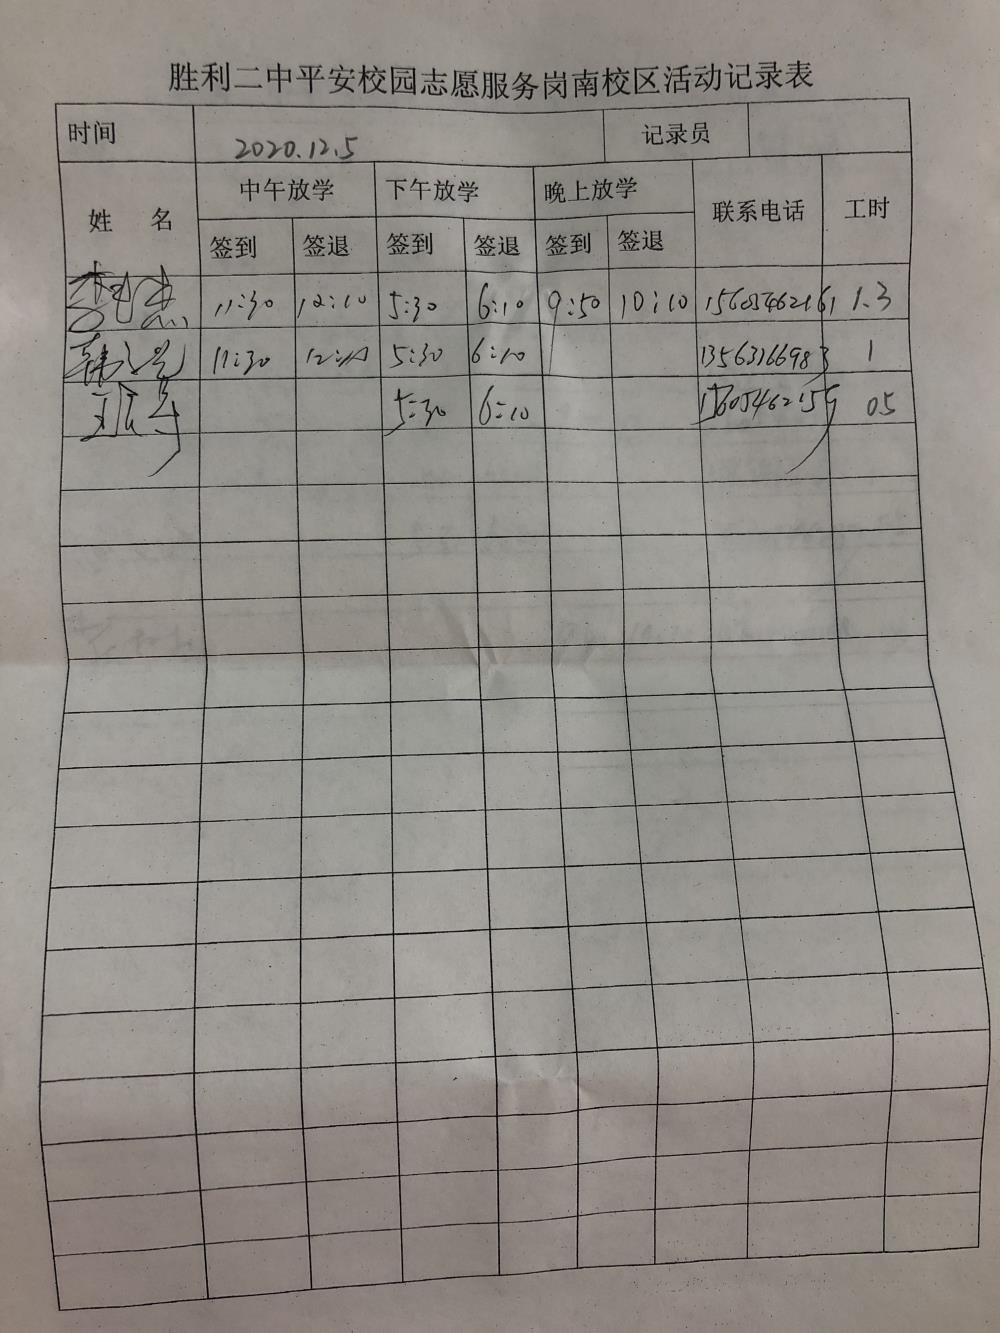 胜利二中平安校园志愿服务岗南校区活动记录表
时间 2020.12.5 记录员
姓 名 中午放学 下午放学 晚上放学 联系电话 工时
签到 签退 签到 签退 签到 签退
11:30 12:10 5:30 6:10 9:50 10:10 15605462161 1.3
韩 11:30 12:10 5:30 6:10 1
5:30 6:10 15605462159 05